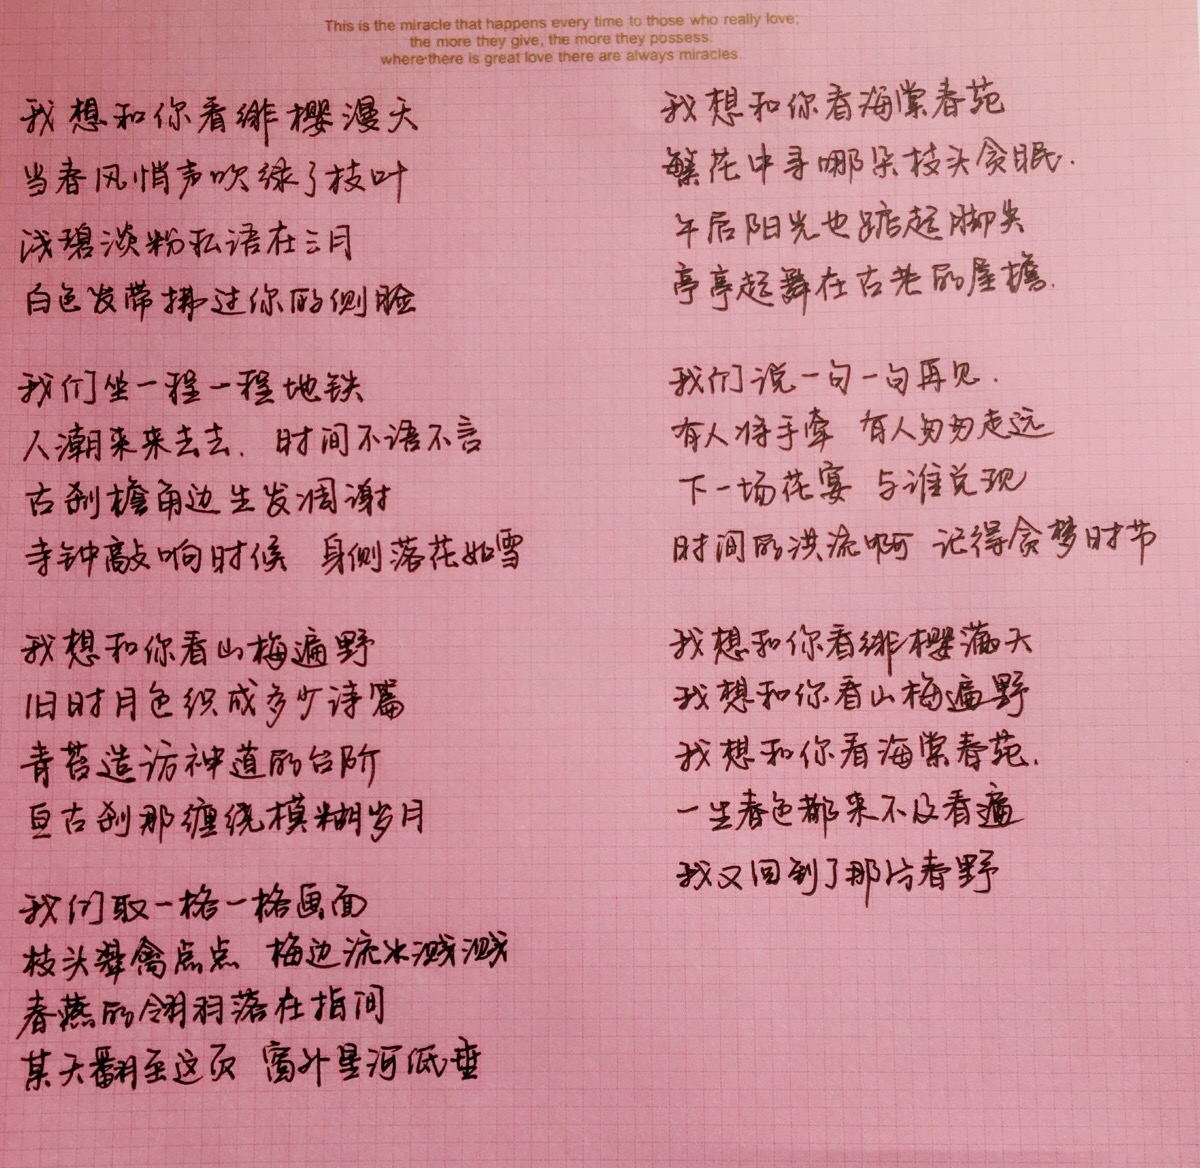 This is the miracle that happens every time to those who really love;
the more they give, the more they possess.
where there is great love there are always miracles.
我想和你看绯樱漫天
当春风悄声吹绿了枝叶
浅碧淡粉私语在三月
白色发带拂过你的侧脸
我们坐一程一程地铁
人潮来来去去. 时间不语不言
古刹檐角边生发凋谢
寺钟敲响时候 身侧落花如雪
我想和你看山梅遍野
旧时月色织成多少诗篇
青苔造访神道的台阶
亘古刹那缠绕模糊岁月
我们取一格一格画面
枝头舞禽点点 梅边流水溅溅
春燕的翎羽落在指间
某天翻至这页 窗外星河低垂
我想和你看海棠春苑
繁花中寻哪朵枝头贪眠.
午后阳光也踮起脚尖
亭亭起舞在古老的屋檐.
我们说一句一句再见.
有人将手牵 有人匆匆走远
下一场花宴 与谁兑现
时间的洪流啊 记得贪梦时节
我想和你看绯樱满天
我想和你看山梅遍野
我想和你看海棠春苑.
一生春色都来不及看遍
我又回到了那片春野